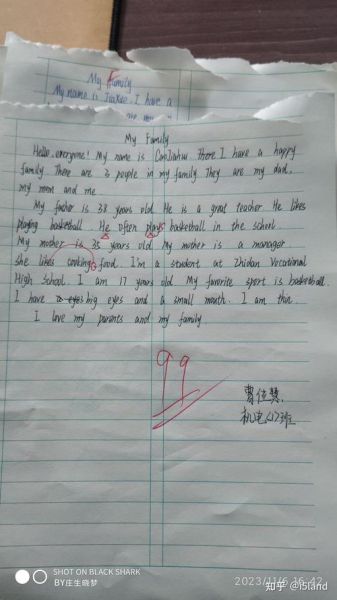 My Family
My name is I have a
My Family
Hello, everyone! My name is There I have a happy
family There are 3 people in my family They are my dad,
my mom and me.
My father is 38 years old He is a great teacher He likes
playing basketball. He often plays basketball in the school
My mother is 35 years old My mother is a manager
she likes cooking food. I'm a student at Zhidan Vocational
High School. I am 17 years old My favorite sport is basketball.
I have big eyes and a small mouth. I am thin
I love my parents and my family
99
机电
SHOT ON BLACK SHARK
BY庄生晓梦
2023/11/6 16:42
知乎 @i5land